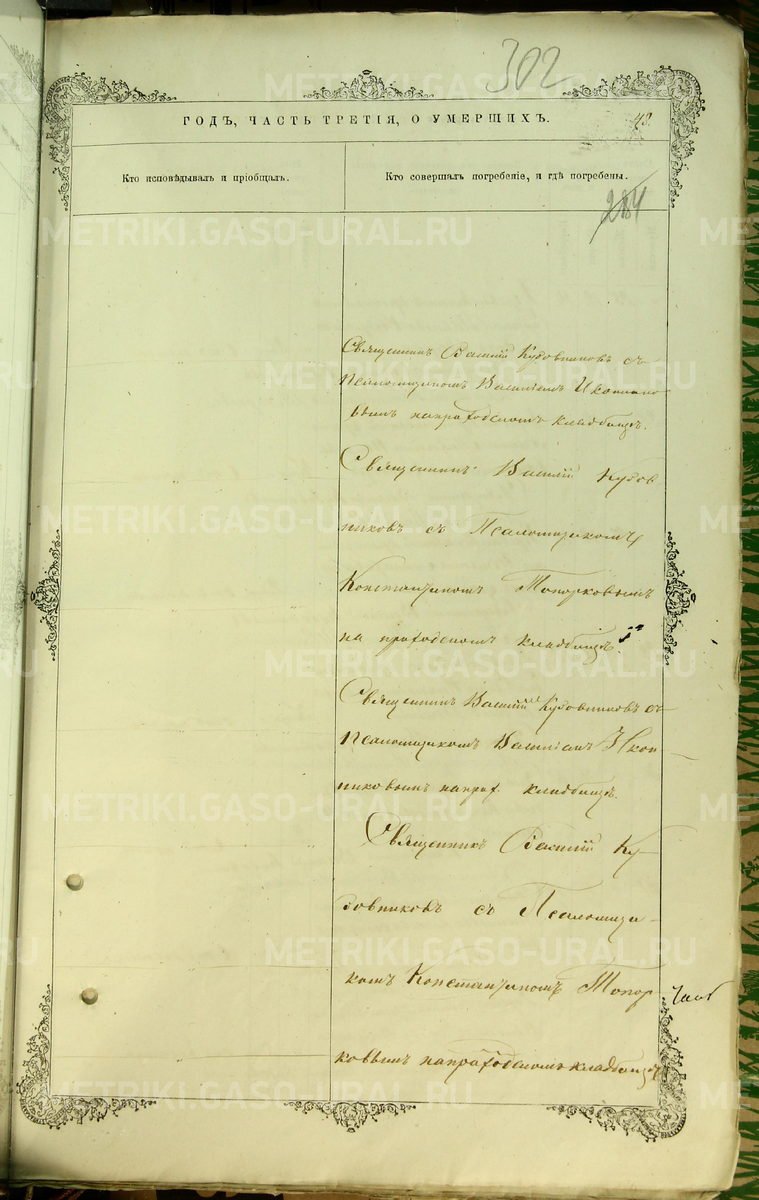 302
ГОДЪ, ЧАСТЬ ТРЕТІЯ, О УМЕРШИХЪ.
Кто исповѣдывалъ и пріобщалъ.
Кто совершалъ погребеніе, и гдѣ погребены.
284
Священникъ Василій Кудовниковъ съ
Псаломщикомъ Василіемъ Иконнико
вымъ на приходскомъ кладбищѣ.
Священникъ Василій Кудов
никовъ съ Псаломщикомъ
Константиномъ Топорковымъ
на приходскомъ кладбищѣ.
Священникъ Василій Кудовниковъ съ
Псаломщикомъ Василіемъ Икон
никовымъ на прих. кладбищѣ.
Священникъ Василій Ку-
довниковъ съ Псаломщи-
комъ Константиномъ Топор
ковымъ на приходскомъ кладбищѣ
METRIKI.GASO-URAL.RU